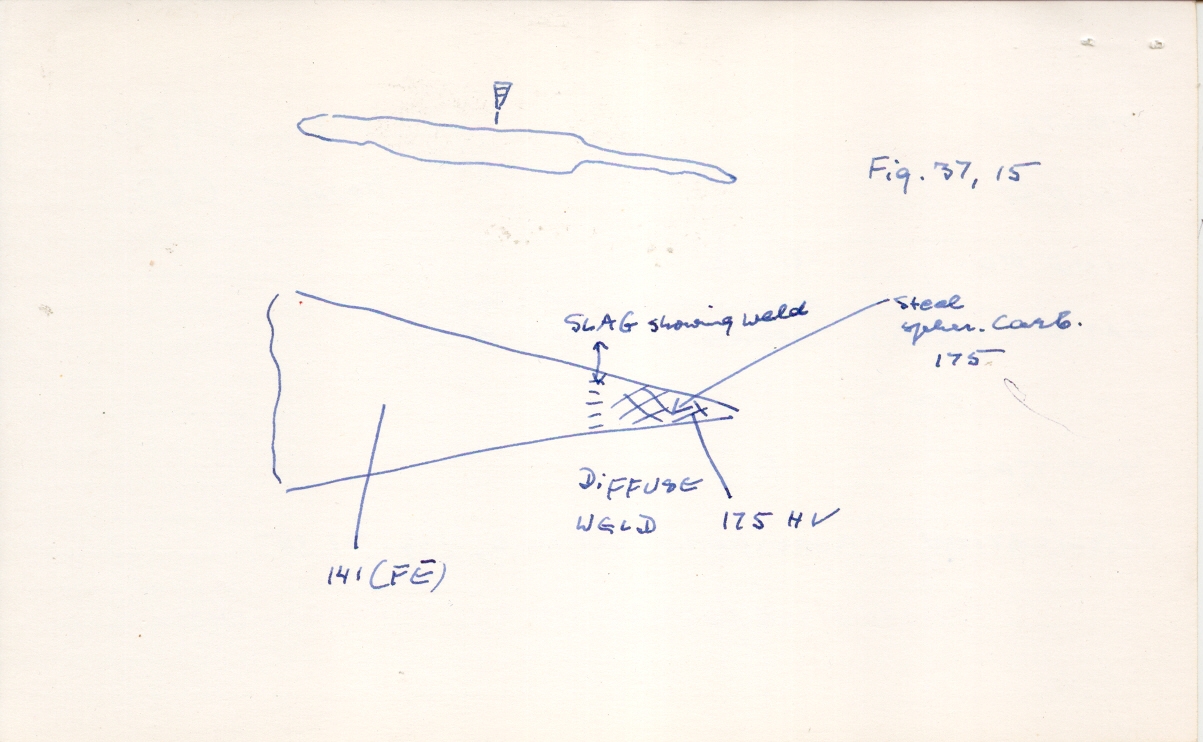 Fig. 37, 15
SLAG showing weld
Steel
spher. carb.
175
DIFFUSE
WELD
175 HV
141 (FE)